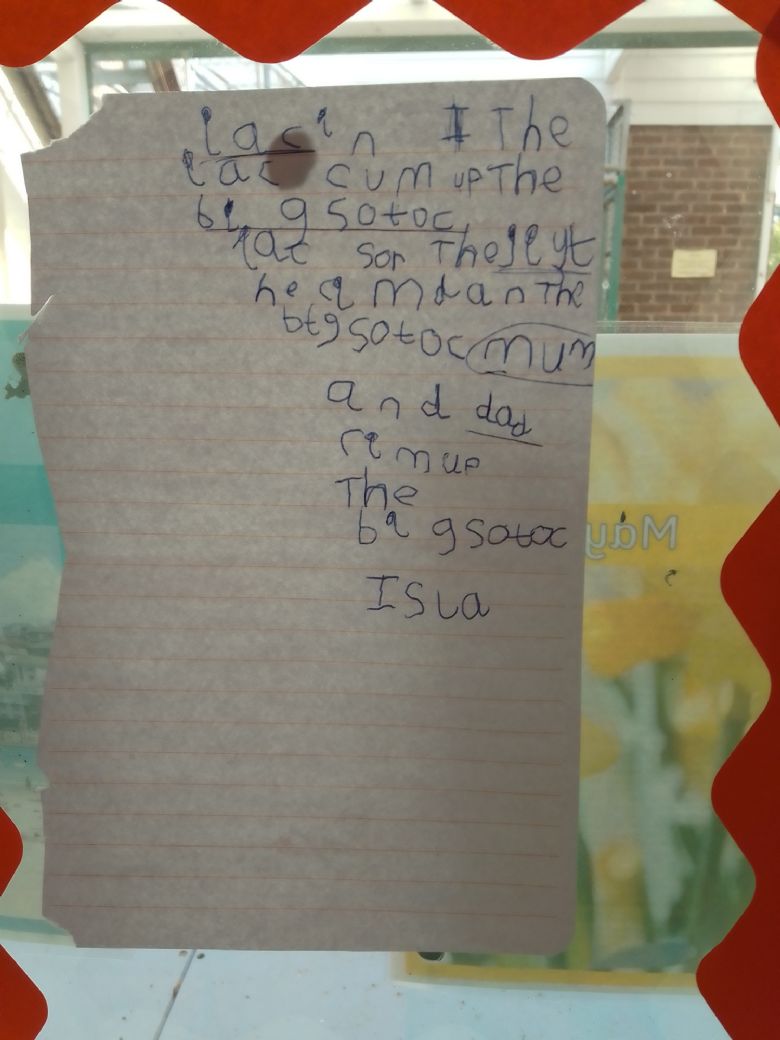 Jacin I The
Jac cum up The
big sotoc
Jac sor The Jiyt
he cimd an The
big sotoc mum
and dad
cimup
The
bigsotoc
ISLa
May